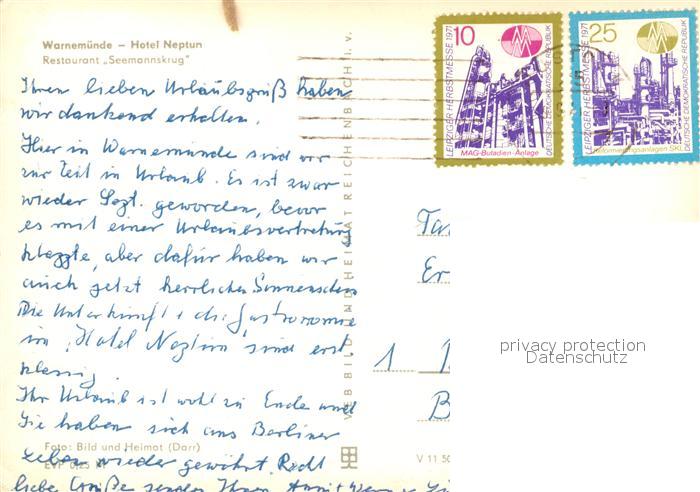 Warnemünde – Hotel Neptun
Restaurant „Seemannskrug"
Ihren lieben Urlaubsgruß haben
wir dankend erhalten.
Hier in Warnemünde sind wir
zur Zeit in Urlaub. Es ist zwar
wieder Sept. geworden, bevor
es mit einer Urlaubsvertretung
klappte, aber dafür haben wir
auch jetzt herrlichen Sonnenschein
Die Unterkunft u. die Gastronomie
im „Hotel Neptun" sind erst
klassig.
Ihr Urlaub ist wohl zu Ende und
Sie haben sich ans Berliner
Leben wieder gewöhnt. Recht
liebe Grüße senden Ihnen
Foto: Bild und Heimat (Darr)
EVP 0,25 M
VEB BILD UND HEIMAT REICHENBACH i. V.
V 11 50
10
LEIPZIGER HERBSTMESSE 1971
DEUTSCHE DEMOKRATISCHE REPUBLIK
MAG-Butadien-Anlage
25
LEIPZIGER HERBSTMESSE 1971
DEUTSCHE DEMOKRATISCHE REPUBLIK
Reformierungsanlagen SKL
Er
1
B
privacy protection
Datenschutz